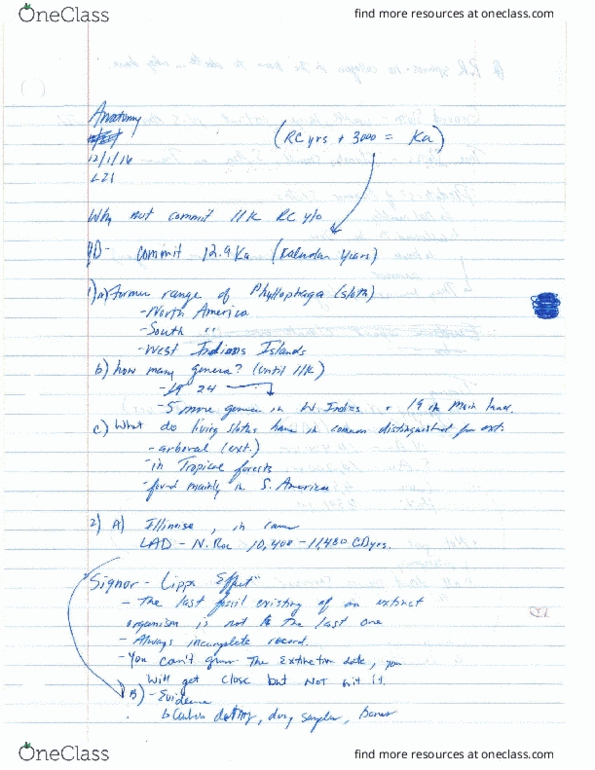 OneClass
find more resources at oneclass.com
Anatomy
(RC yrs + 3000 = Ka)
12/1/16
L21
Why not commit 11K RC y/o
commit 12.9 Ka (Kalendar Years)
1) a) Former range of Phyllophaga (sloth)
- North America
- South "
- West Indians Islands
b) how many genera? (until 11K)
- 24
- 5 more genera in W. Indies + 19 on Main land.
c) What do living sloths have in common distinguished from ext:
- arboreal (ext.)
- in Tropical forests
- found mainly in S. America
2) A) Illinoise, in
LAD - N. 10,400 - 11,480 yrs.
"Signor - Lipps Effect"
- The last fossil existing of an extinct
organism is not the last one
- Always incomplete record.
- You can't The Extinction date, you
will get close but NOT hit it.
B) - Evidence
Carbon dating, dung samples, bones
OneClass
find more resources at oneclass.com